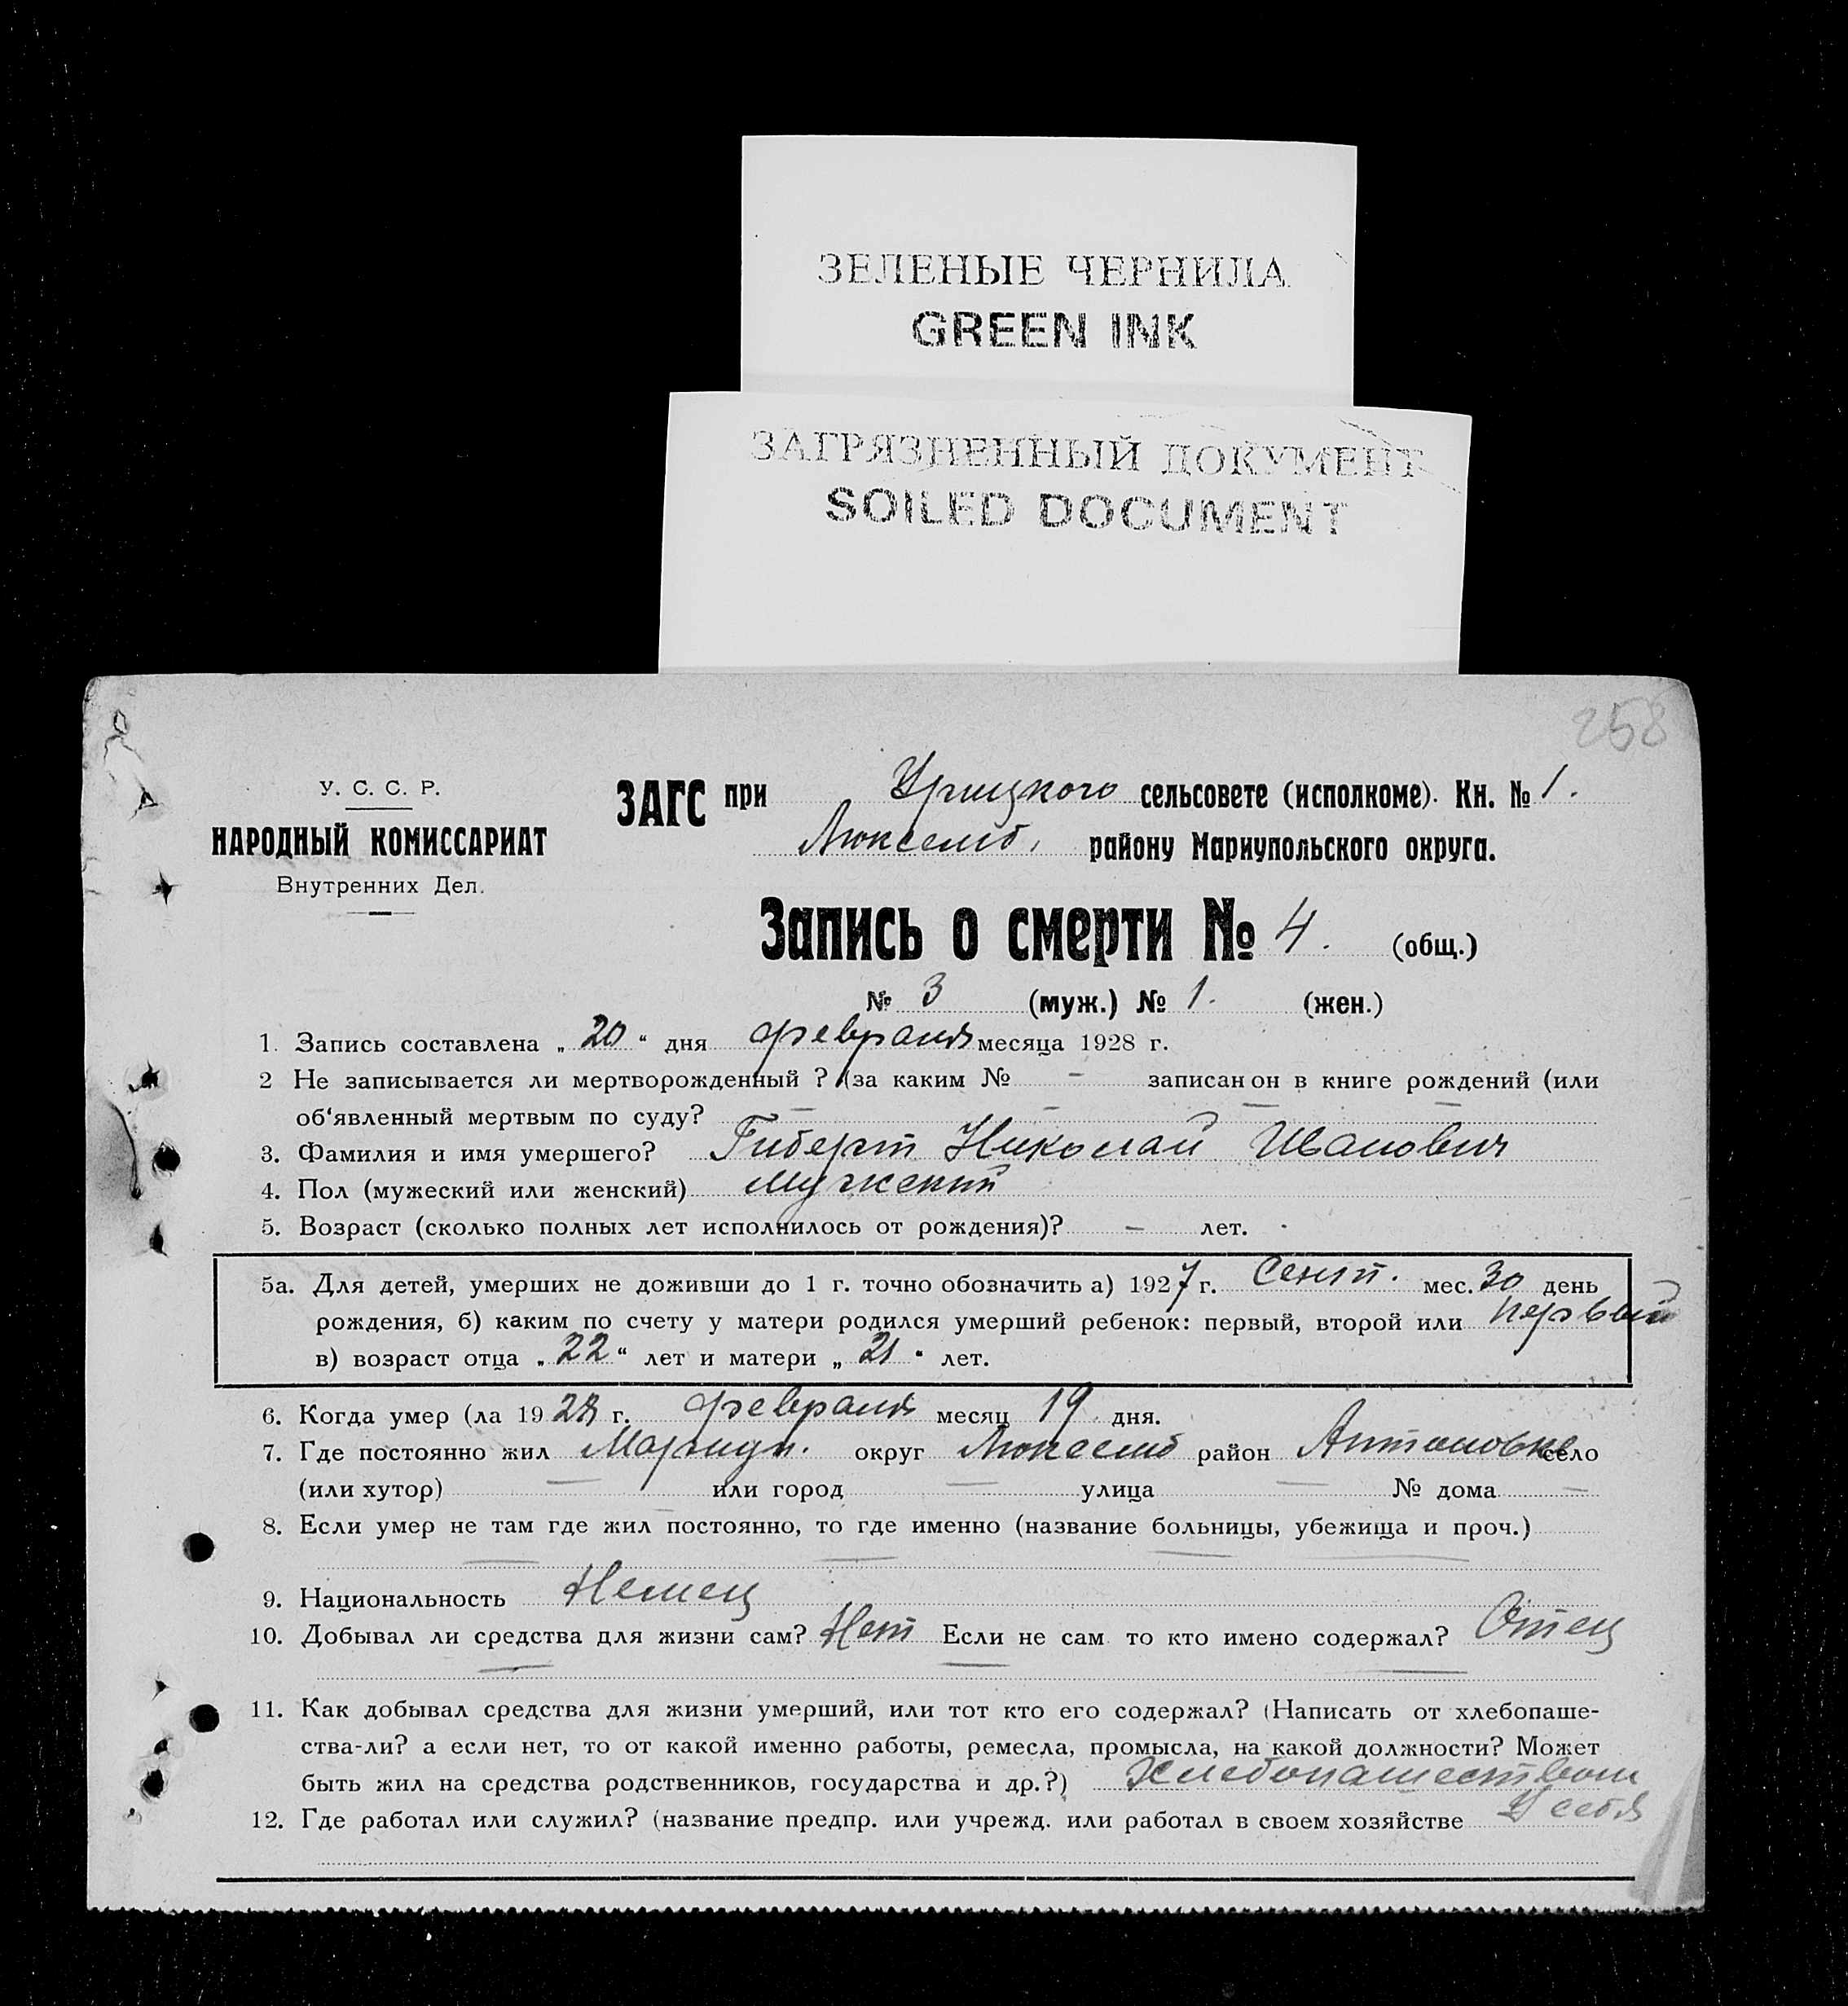 ЗЕЛЕНЫЕ ЧЕРНИЛА
GREEN INK
ЗАГРЯЗНЕННЫЙ ДОКУМЕНТ
SOILED DOCUMENT
258
У. С. С. Р.
НАРОДНЫЙ КОМИССАРИАТ
Внутренних Дел.
ЗАГС при Урицкого сельсовете (исполкоме). Кн. № 1.
Люксемб. району Мариупольского округа.
Запись о смерти № 4. (общ.)
№ 3 (муж.) № 1. (жен.)
1. Запись составлена „ 20 “ дня февраля месяца 1928 г.
2 Не записывается ли мертворожденный ? (за каким № - записан он в книге рождений (или
об‘явленный мертвым по суду? — — — —
3. Фамилия и имя умершего? Гиберт Николай Иванович
4. Пол (мужеский или женский) Мужский
5. Возраст (сколько полных лет исполнилось от рождения)? — лет.
5а. Для детей, умерших не доживши до 1 г. точно обозначить а) 1927 г. Сент. мес. 30 день
рождения, б) каким по счету у матери родился умерший ребенок: первый, второй или первый
в) возраст отца „ 22 “ лет и матери „ 21 “ лет.
6. Когда умер (ла 1928 г. февраля месяц 19 дня.
7. Где постоянно жил Мариуп. округ Люксемб район Антоновка село
(или хутор) — или город — улица — № дома —
8. Если умер не там где жил постоянно, то где именно (название больницы, убежища и проч.)
— — — —
9. Национальность Немец
10. Добывал ли средства для жизни сам? Нет Если не сам то кто имено содержал? Отец
— — —
11. Как добывал средства для жизни умерший, или тот кто его содержал? (Написать от хлебопаше-
ства-ли? а если нет, то от какой именно работы, ремесла, промысла, на какой должности? Может
быть жил на средства родственников, государства и др.?) Хлебопашеством
12. Где работал или служил? (название предпр. или учрежд. или работал в своем хозяйстве У себя